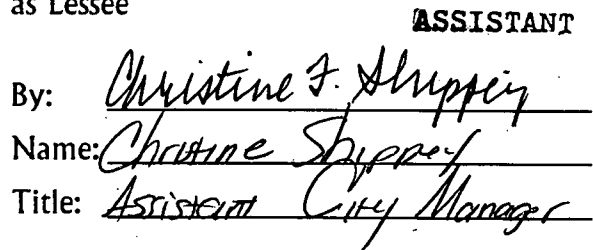 as Lessee
ASSISTANT
By: Christine F. Shippey
Name: Christine Shippey
Title: Assistant City Manager